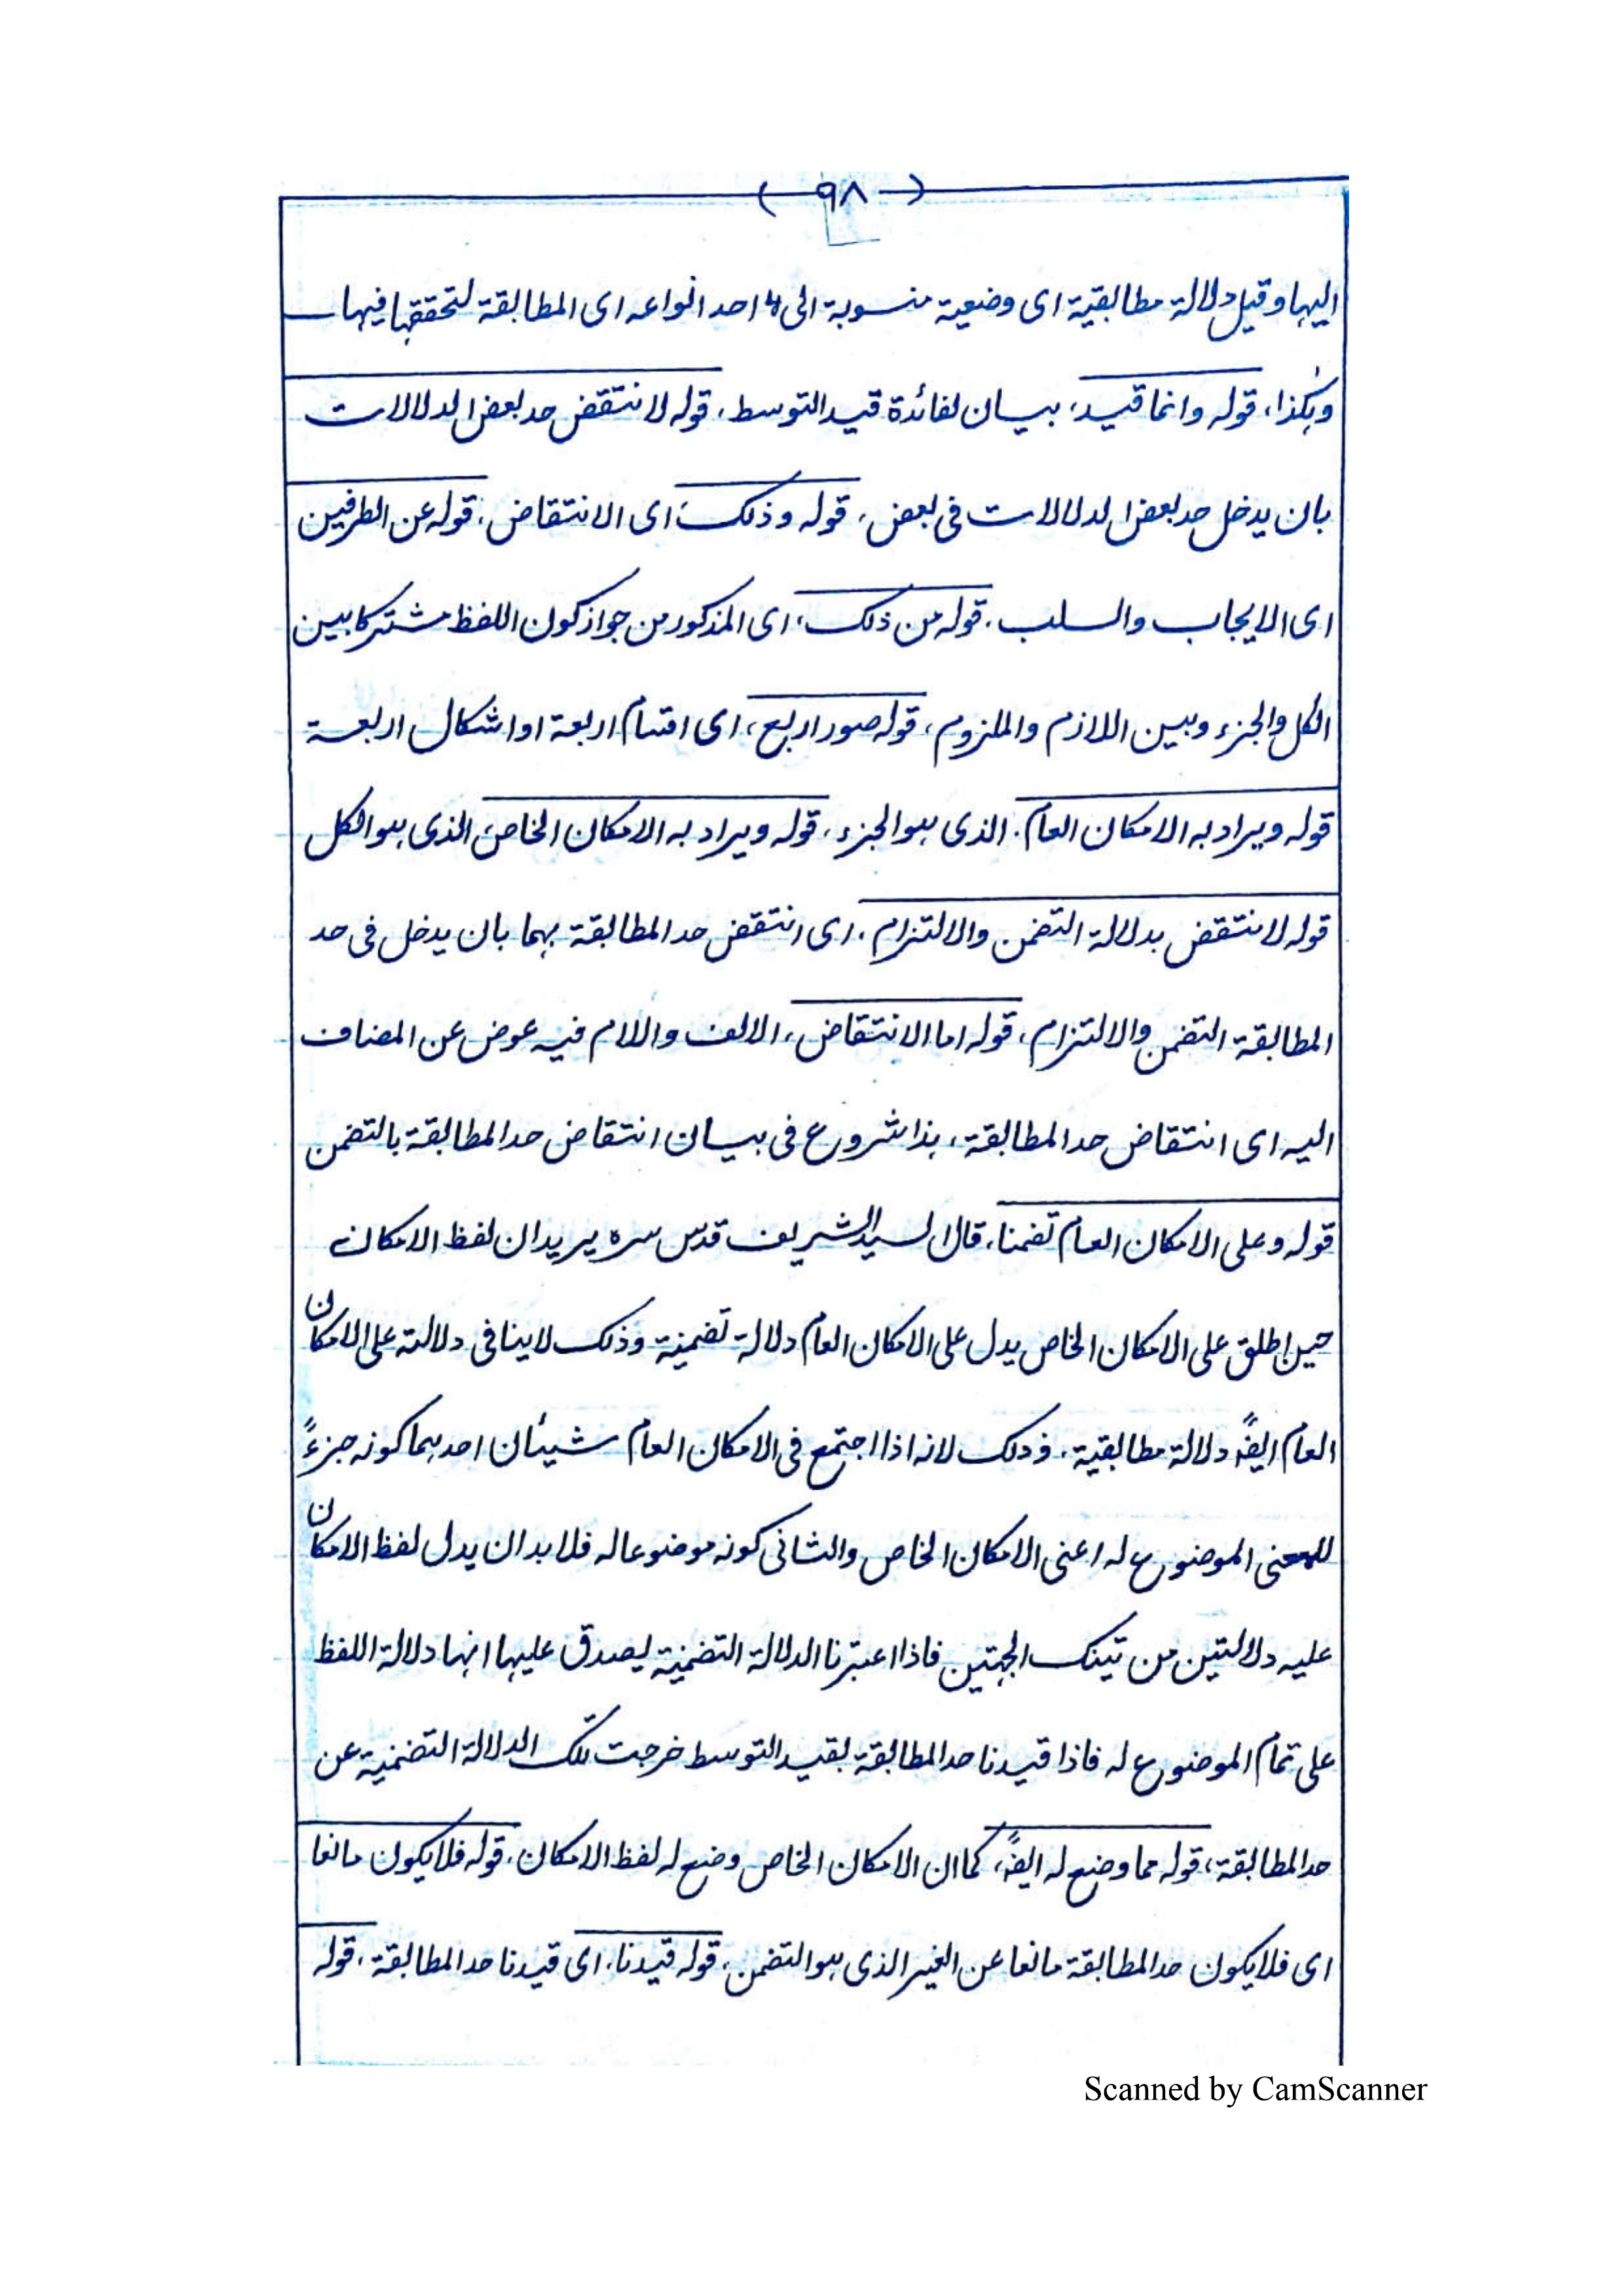 (٩٨)
اليها وقيل دلالة مطابقية اى وضعية منسوبة الى احد انواعه اى المطابقة لتحققها فيها
وهكذا، قوله وانما قيد، بيان لفائدة قيد التوسط، قوله لانتقض حد بعض الدلالات
بان يدخل حد بعض الدلالات فى بعض، قوله وذلك، اى الانتقاض، قوله عن الطرفين
اى الايجاب والسلب، قوله من ذلك، اى المذكور من جواز كون اللفظ مشتركا بين
الكل والجزء وبين اللازم والملزوم، قوله صور اربع، اى اقسام اربعة او اشكال اربعة
قوله ويراد به الامكان العام، الذى هو الجزء، قوله ويراد به الامكان الخاص، الذى هو الكل
قوله لانتقض بدلالة التضمن والالتزام، اى انتقض حد المطابقة بهما بان يدخل فى حد
المطابقة التضمن والالتزام، قوله اما الانتقاض، الالف واللام فيه عوض عن المضاف
اليه اى انتقاض حد المطابقة، هذا شروع فى بيان انتقاض حد المطابقة بالتضمن
قوله وعلى الامكان العام تضمنا، قال السيد الشريف قدس سره يريد ان لفظ الامكان
حين اطلق على الامكان الخاص يدل على الامكان العام دلالة تضمنية وذلك لاينافى دلالته على الامكان
العام ايضًا دلالة مطابقية، وذلك لانه اذا اجتمع فى الامكان العام شيئان احدهما كونه جزءً
للمعنى الموضوع له اعنى الامكان الخاص والثانى كونه موضوعا له فلابد ان يدل لفظ الامكان
عليه دلالتين من تينك الجهتين فاذا اعتبرنا الدلالة التضمنية يصدق عليها انها دلالة اللفظ
على تمام الموضوع له فاذا قيدنا حد المطابقة بقيد التوسط خرجت تلك الدلالة التضمنية عن
حد المطابقة، قوله مما وضع له ايضًا، كما ان الامكان الخاص وضع له لفظ الامكان، قوله فلايكون مانعا
اى فلايكون حد المطابقة مانعا عن الغير الذى هو التضمن، قوله قيدنا، اى قيدنا حد المطابقة، قوله
Scanned by CamScanner